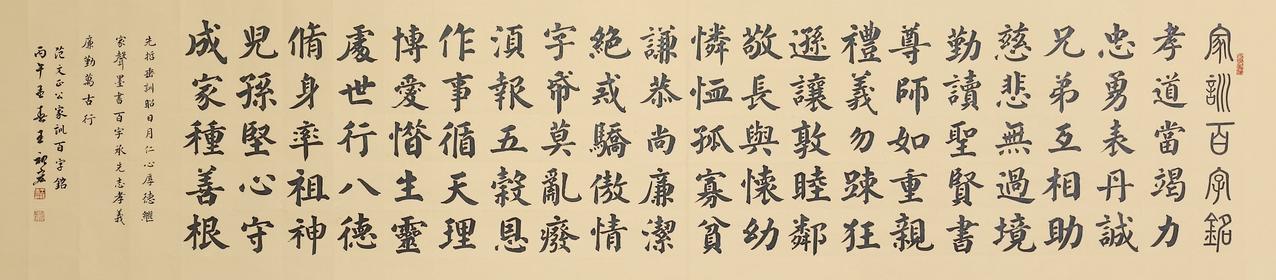 家訓百字銘
孝道當竭力
忠勇表丹誠
兄弟互相助
慈悲無過境
勤讀聖賢書
尊師如重親
禮義勿踈狂
遜讓敦睦鄰
敬長與懷幼
憐恤孤寡貧
謙恭尚廉潔
絕戒驕傲情
字帋莫亂廢
湏報五穀恩
作事循天理
博愛惜生靈
處世行八德
脩身率祖神
児孫堅心守
成家種善根
先哲垂訓昭日月仁心厚德繼
家聲墨書百字承先志孝義
廉勤萬古行
范文正公家訓百字銘
丙午孟春王